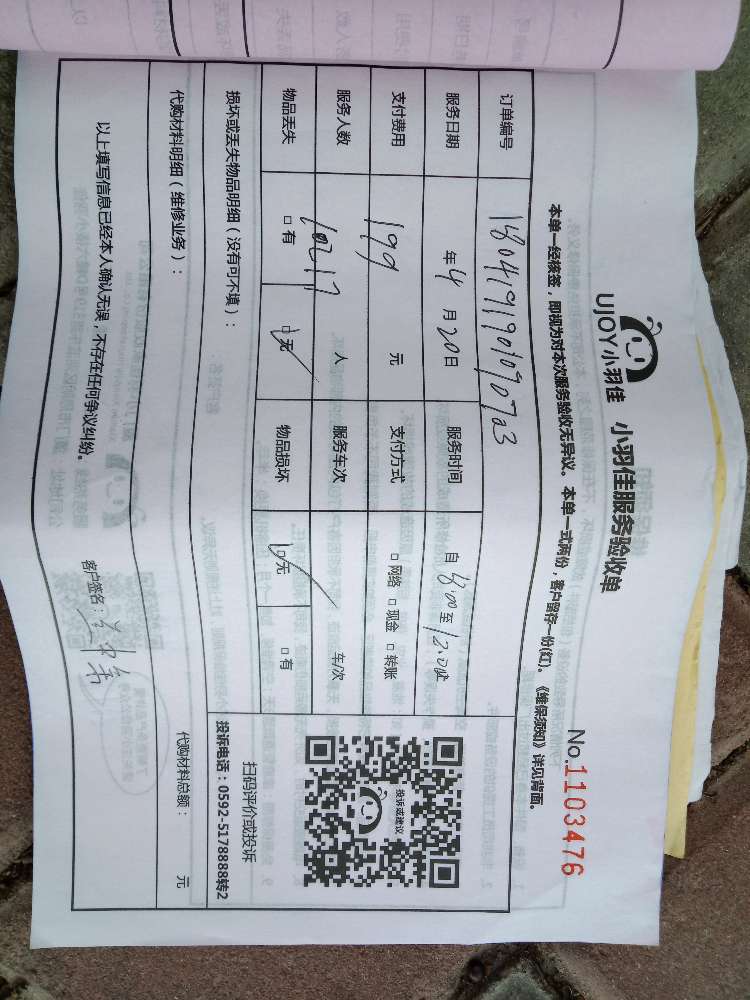 UJOY小羽佳 小羽佳服务验收单
No.1103476
本单一经核签，即视为对本次服务验收无异议。本单一式两份，客户留存一份(红)。《维保须知》详见背面。
订单编号 18041919010907a3
服务日期 年4月20日 服务时间 自 至12:00止
支付费用 199 元 支付方式 □网络 □现金 □转账
服务人数 人 服务车次 车/次
物品丢失 □有 □无 物品损坏 □无 □有
损坏或丢失物品明细（没有可不填）：
代购材料明细（维修业务）：
代购材料总额： 元
以上填写信息已经本人确认无误，不存在任何争议纠纷。
客户签名：
投诉或建议
扫码评价或投诉
投诉电话：0592-5178888转2